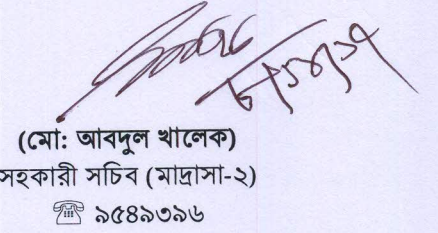 (মো: আবদুল খালেক)
সহকারী সচিব (মাদ্রাসা-২)
☎ ৯৫৪৯৩৯৬